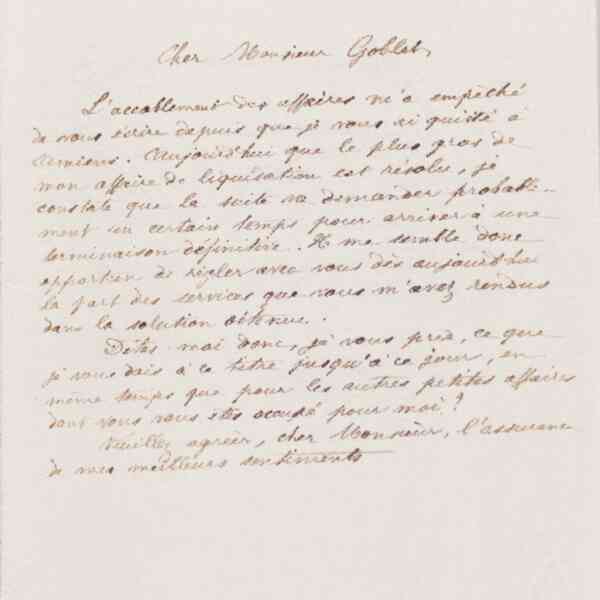 Cher Monsieur Goblet,
L'accablement des affaires m'a empêché
de vous écrire depuis que je vous ai quitté à
Amiens. Aujourd'hui que le plus gros de
mon affaire de liquidation est résolu, je
constate que la suite va demander probable-
ment un certain temps pour arriver à une
terminaison définitive. Il me semble donc
opportun de régler avec vous dès aujourd'hui
la part des services que vous m'avez rendus
dans la solution obtenue.
Dites moi donc, je vous prie, ce que
je vous dois à ce titre jusqu'à ce jour, en
même temps que pour les autres petites affaires
dont vous vous êtes occupé pour moi?
Veuillez agréer, cher Monsieur, l'assurance
de mes meilleurs sentiments